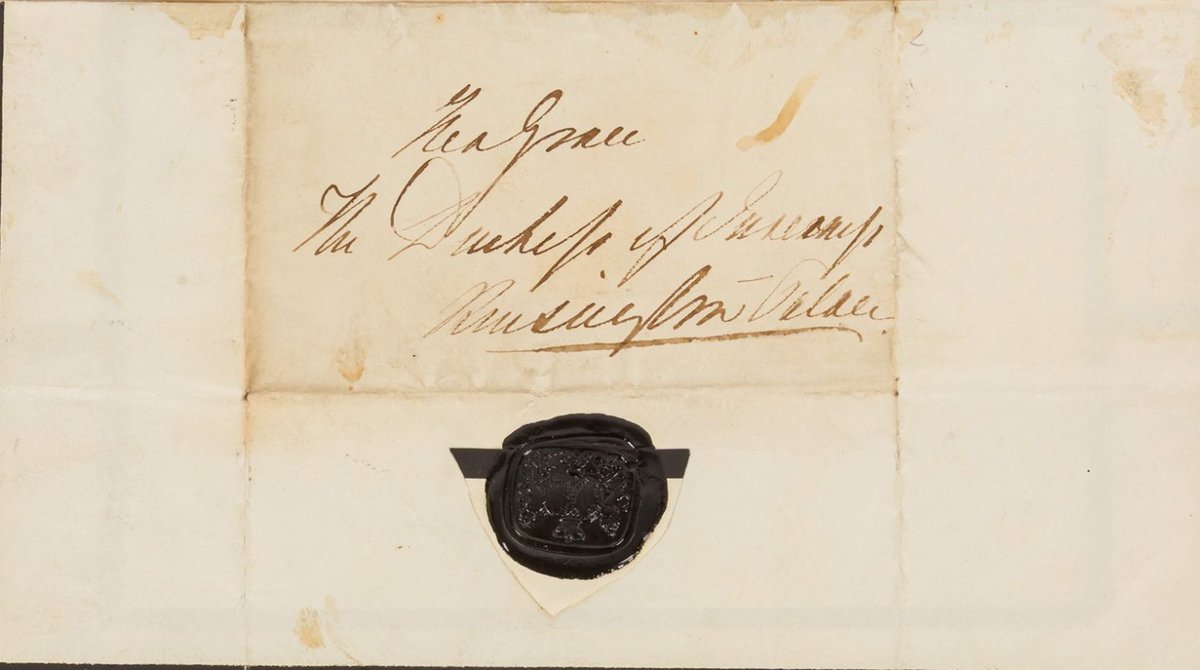 Her Grace
The Duchess of Inverness
Kensington Palace